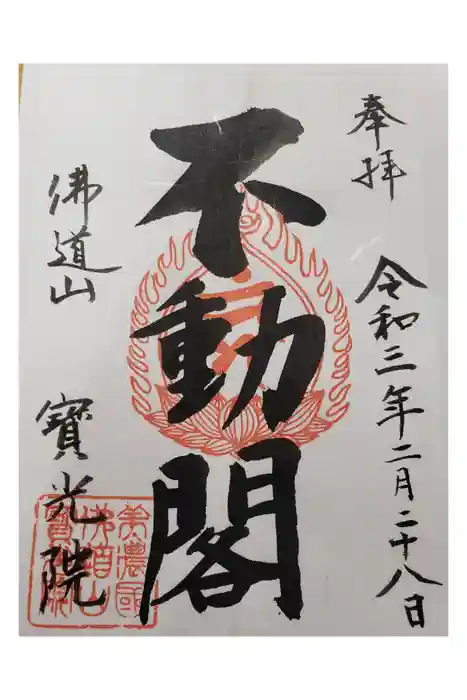 奉拝
令和三年二月二十八日
不動閣
佛道山
寳光院
美濃國
佛道山